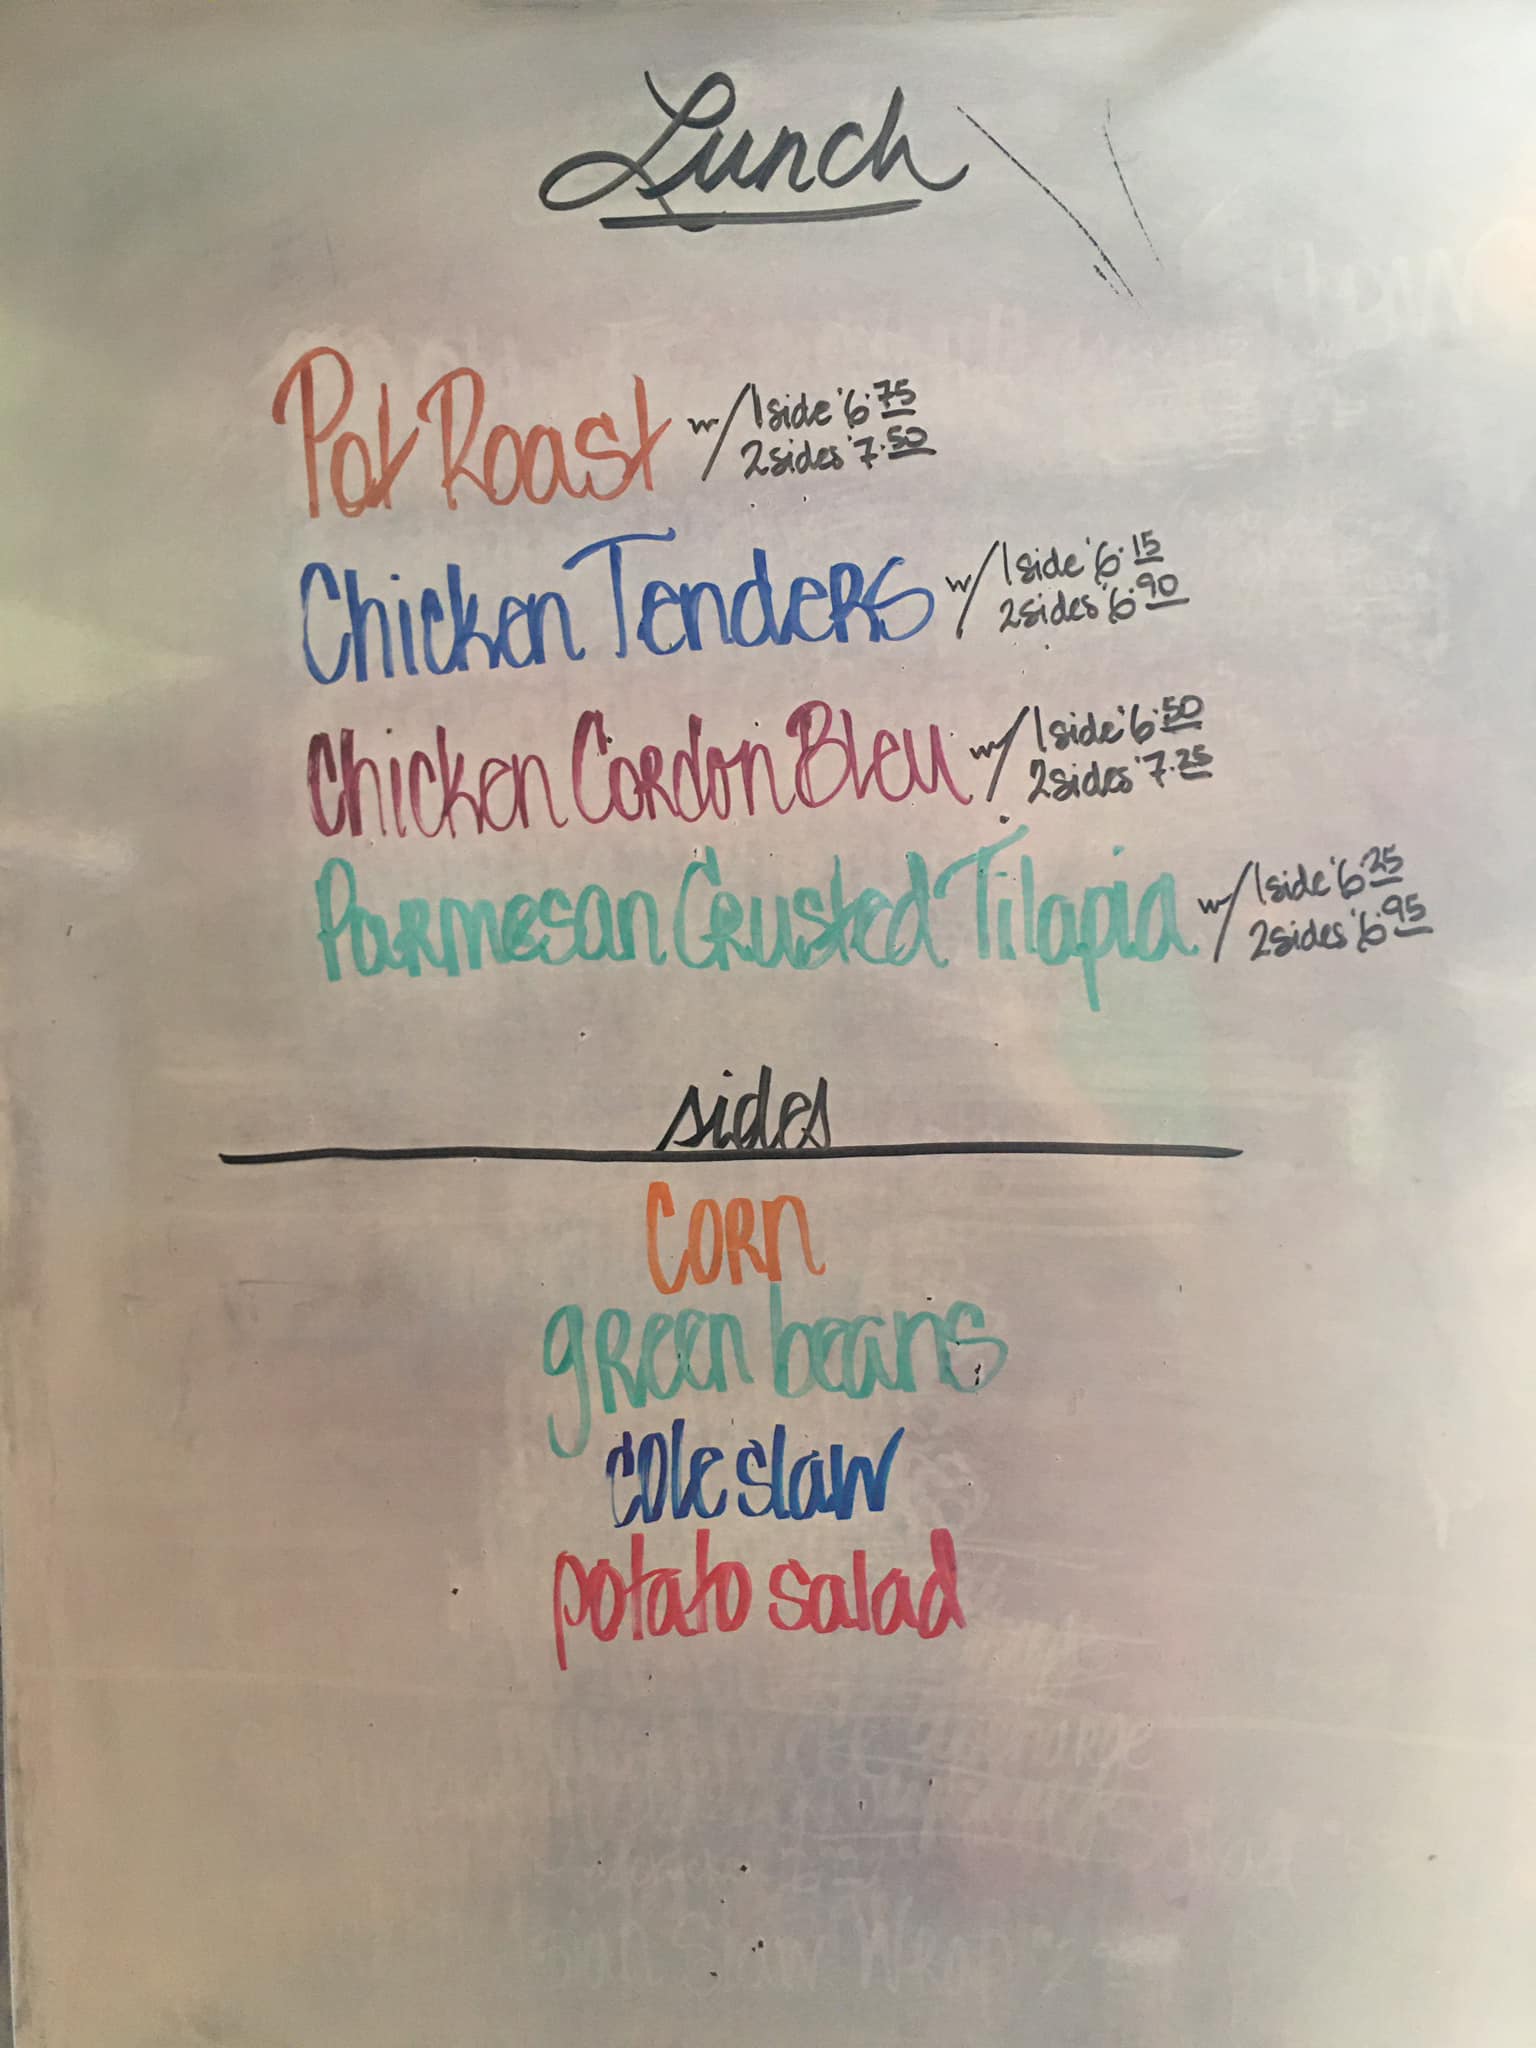 Lunch
Pot Roast w/ 1 side '6.75
2 sides '7.50
Chicken Tenders w/ 1 side '6.15
2 sides '6.90
Chicken Cordon Bleu w/ 1 side '6.50
2 sides '7.25
Parmesan Crusted Tilapia w/ 1 side '6.25
2 sides '6.95
sides
corn
green beans
cole slaw
potato salad